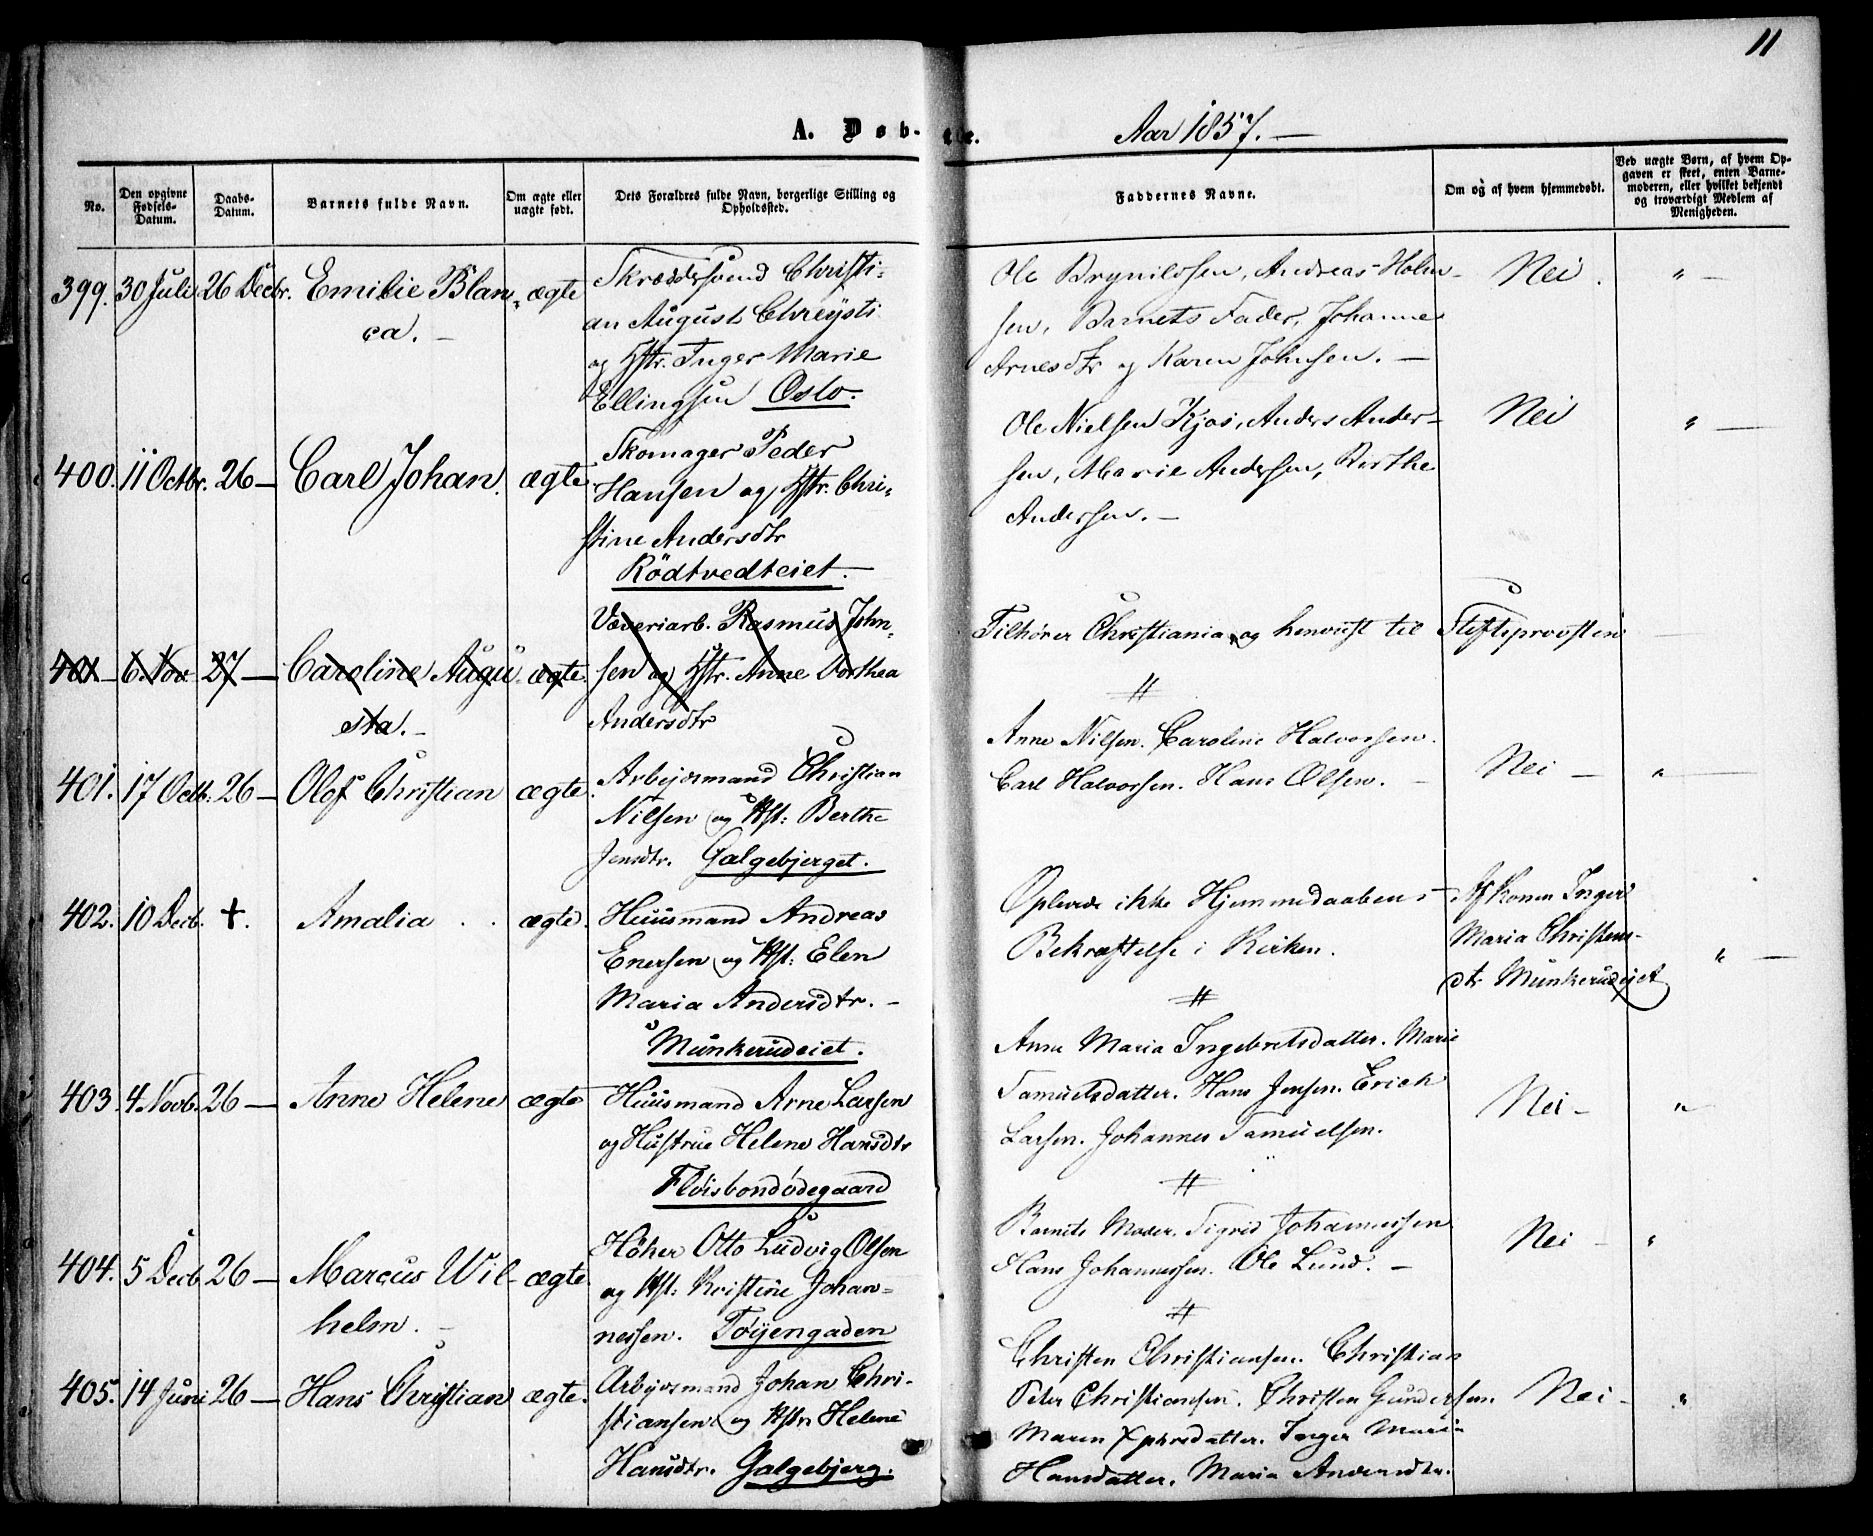 11
A. Døb- te.
Aar 1857. —
No.
Den opgivne Fødsels-Datum.
Daabs-Datum.
Barnets fulde Navn.
Om ægte eller uægte født.
Dets Forældres fulde Navn, borgerlige Stilling og Opholdssted.
Faddernes Navne.
Om og af hvem hjemmedøbt.
Ved uægte Børn, af hvem Opgaven er skeet, enten Barnemoderen, eller hvilket bekjendt og troværdigt Medlem af Menigheden.
399. 30 Juli 26 Decbr. Emilie Blan- ægte
ca. —
Skræddersvend Christi-
an August Chreysti
og Hstr. Inger Marie
Ellingsen Oslo.
Ole Brynildsen, Andreas Holm-
sen, Barnets Fader, Johanne
Arnesdtr og Karen Johnsen. —
Nei. " —
400. 11 Octbr. 26 — Carl Johan. ægte
Skomager Peder
Hansen og Hstr. Chri-
stine Andersdtr
Rödtvedteiet. —
Ole Nielsen Kjos, Anders Ander-
sen, Marie Andersen, Berthe
Andersen. —
Nei " —
401 — 6. Nov 27 — Caroline Augu- ægte.
sta. —
Væveriarb. Rasmus John-
sen og Hstr. Anne Dorthea
Andersdtr
Tilhører Christiania og henviist til Stiftsprovsten —
#
401. 17 Octb: 26 — Olof Christian ægte.
Arbejdsmand Christian
Nilsen og Hst: Berthe
Jensdtr. Galgebjerget.
Anne Nilsen. Caroline Halvorsen.
Carl Halvorsen. Hans Olsen. —
Nei — " —
402. 10 Decb. +. Amalia . . ægte.
Huusmand Andreas
Enersen og Hst: Elen
Maria Andersdtr. —
Munkerudeiet.
Oplevede ikke Hjemmedaabens
Bekræftelse i Kirken.
#
Af Konen Inger
Maria Christens-
dtr Munkerudejet
" —
403. 4. Novb. 26 — Anne Helene ægte
Huusmand Arne Larsen
og Hustrue Helene Hansdtr
Fløisbondødegaard
Anne Maria Ingebretsdatter. Marie
Samuelsdatter. Hans Jensen. Erich
Larsen. Johannes Samuelsen.
#
Nei — "
404. 5 Decb 26 — Marcus Wil- ægte.
helm. —
Höker Otto Ludvig Olsen
og Hst: Kristine Johan-
nessen. Tøiengaden
Barnets Moder. Sigrid Johannessen
Hans Johannessen. Ole Lund. —
#
Nei — "
405. 14 Juni 26 — Hans Christian ægte.
Arbejdsmand Johan Chri-
stiansen og Hstr: Helene
Hansdtr. Galgebjerg.
Christen Christiansen. Christian
Peter Christiansen. Christen Gundersen.
Maren
Inger Maria
Hansdatter. Maria Andersdtr.
Nei — "